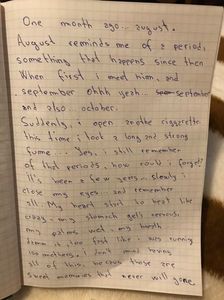 One month ago... august.
August reminds me of 2 periods,
something that happens since then
When first i meet him, and
september ohhh yeah... september
and also october.
Suddenly, i open another ciggarette
this time i took a long and strong
fume... Yes, i still remember
of that periods, how could i forget?
It's been a few years. slowly i
close my eyes and remember
all. My heart start to beat like
crazy - my stomach gets nervous,
my palms wet - my breath
damn is too fast like i was running
100 methers. I don't mind having
all of this, becouse those are
sweet memories that never will gone.